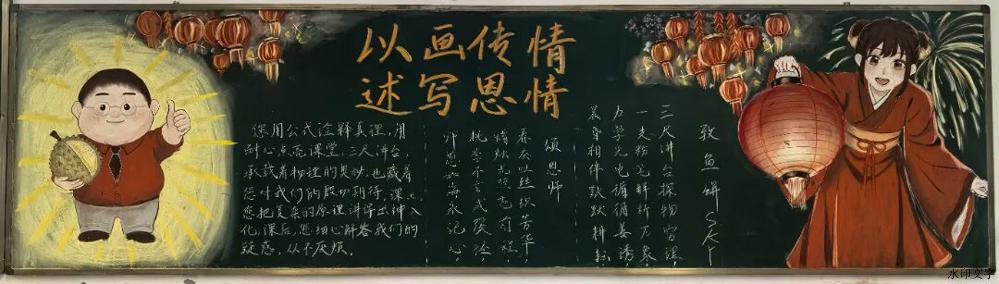 以画传情
述写恩情
您用公式诠释真理，用
耐心点亮课堂，三尺讲台，
承载着物理的奥妙，也藏着
您对我们的殷切期待，课上
您把复杂的原理讲得出神入
化，课后，您细心解答我们的
疑惑，从不厌烦。
颂恩师
春蚕吐丝织芳华
桃李不言
师恩如海永记心
三尺讲台探物穷理，
一支粉笔解析万象
力学光电循善诱，
寒暑相伴默默耕耘
水印文字